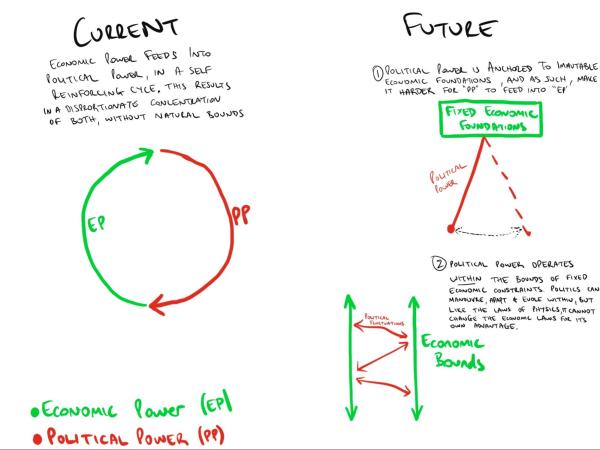 CURRENT
ECONOMIC POWER FEEDS INTO
POLITICAL POWER, IN A SELF
REINFORCING CYCLE, THIS RESULTS
IN A DISPRORTIONATE CONCENTRATION
OF BOTH, WITHOUT NATURAL BOUNDS
EP
PP
Economic Power (EP)
POLITICAL POWER (PP)
FUTURE
1 POLITICAL POWER IS ANCHORED TO IMMUTABLE
ECONOMIC FOUNDATIONS, AND AS SUCH, MAKE
IT HARDER FOR "PP" TO FEED INTO "EP"
FIXED ECONOMIC
FOUNDATIONS
POLITICAL
POWER
2 POLITICAL POWER OPERATES
WITHIN THE BOUNDS OF FIXED
ECONOMIC CONSTRAINTS. POLITICS CAN
MANUVRE, ADAPT & EVOLE WITHIN, BUT
LIKE THE LAWS OF PHYSICS, IT CANNOT
CHANGE THE ECONOMIC LAWS FOR ITS
OWN ADVANTAGE.
POLITICAL
FLUCTUATIONS
ECONOMIC
BOUNDS